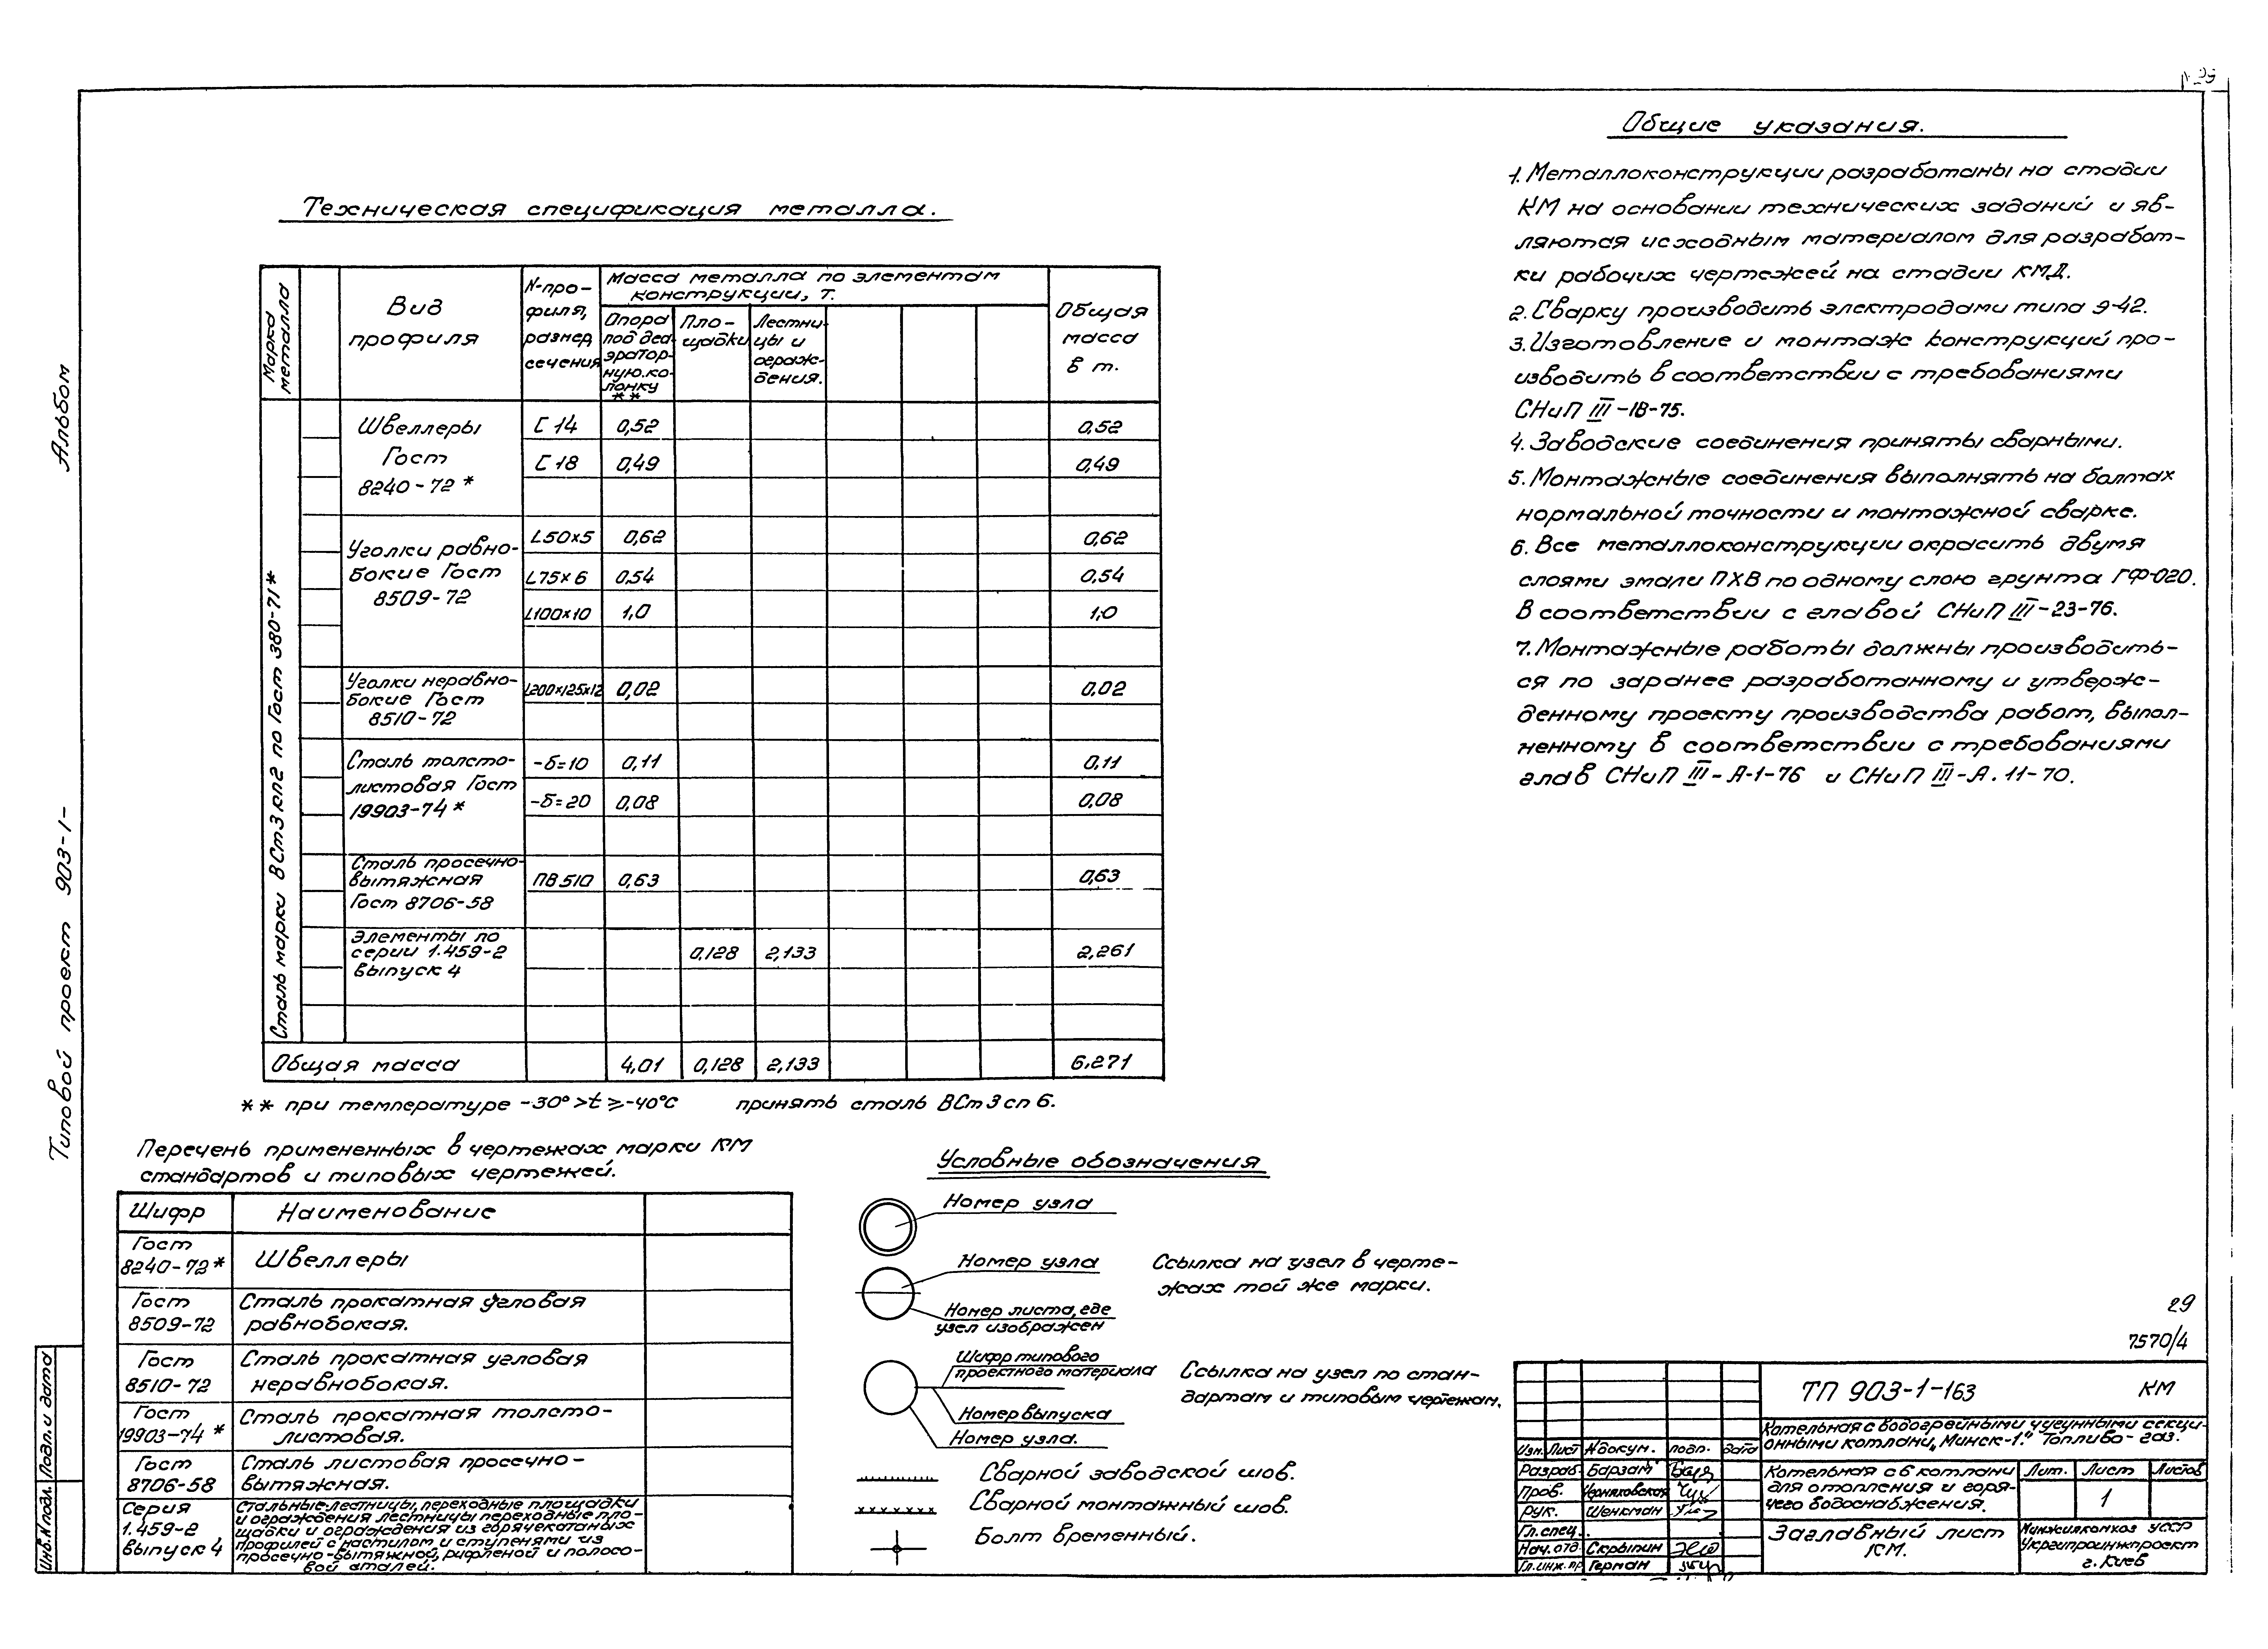 Альбом
Типовой проект 903-1-
Инв.N подл.
Подп. и дата
Техническая спецификация металла.
Марка металла
Вид профиля
N-про-
филя,
размер
сечения
Масса металла по элементам
конструкции, т.
Опора
под деа
эратор-
ную.ко-
лонку
**
Пло-
щадки
Лестни-
цы и
ограж-
дения.
Общая
масса
в т.
Сталь марки ВСт3кп2 по Гост 380-71*
Швеллеры
Гост
8240-72*
С 14 0,52 0,52
С 18 0,49 0,49
Уголки равно-
бокие Гост
8509-72
L50×5 0,62 0,62
L75×6 0,54 0,54
L100×10 1,0 1,0
Уголки неравно-
бокие Гост
8510-72
L200×125×12 0,02 0,02
Сталь толсто-
листовая Гост
19903-74*
-δ=10 0,11 0,11
-δ=20 0,08 0,08
Сталь просечно-
вытяжная
Гост 8706-58
ПВ510 0,63 0,63
Элементы по
серии 1.459-2
выпуск 4
0,128 2,133 2,261
Общая масса 4,01 0,128 2,133 6,271
** при температуре -30°>t≥-40°С принять сталь ВСт3сп6.
Перечень примененных в чертежах марки КМ
стандартов и типовых чертежей.
Шифр Наименование
Гост
8240-72* Швеллеры
Гост
8509-72
Сталь прокатная угловая
равнобокая.
Гост
8510-72
Сталь прокатная угловая
неравнобокая.
Гост
19903-74*
Сталь прокатная толсто-
листовая.
Гост
8706-58
Сталь листовая просечно-
вытяжная.
Серия
1.459-2
выпуск 4
Стальные лестницы, переходные площадки
и ограждения лестницы переходные пло-
щадки и ограждения из горячекатаных
профилей с настилом и ступенями из
просечно-вытяжной, рифленой и полосо-
вой сталей.
Условные обозначения
Номер узла
Номер узла
Номер листа, где
узел изображен
Ссылка на узел в черте-
жах той же марки.
Шифр типового
проектного материала
Номер выпуска
Номер узла.
Ссылка на узел по стан-
дартам и типовым чертежам.
Сварной заводской шов.
Сварной монтажный шов.
Болт временный.
Общие указания.
1. Металлоконструкции разработаны на стадии
КМ на основании технических заданий и яв-
ляются исходным материалом для разработ-
ки рабочих чертежей на стадии КМД.
2. Сварку производить электродами типа Э-42.
3. Изготовление и монтаж конструкций про-
изводить в соответствии с требованиями
СНиП III-18-75.
4. Заводские соединения приняты сварными.
5. Монтажные соединения выполнять на болтах
нормальной точности и монтажной сварке.
6. Все металлоконструкции окрасить двумя
слоями эмали ПХВ по одному слою грунта ГФ-020.
В соответствии с главой СНиП III-23-76.
7. Монтажные работы должны производить-
ся по заранее разработанному и утверж-
денному проекту производства работ, выпол-
ненному в соответствии с требованиями
глав СНиП III-А-1-76 и СНиП III-А.11-70.
29
7570/4
ТП 903-1-163 КМ
Котельная с водогрейными чугунными секци-
онными котлами „Минск-1." Топливо-газ.
Изм. Лист Nдокум. подп. дата
Разраб. Барзам
Пров. Черняховская
Рук. Шенкман
Гл.спец.
Нач.отд. Скрыпин
Гл.инж.пр. Герман
Котельная с 6 котлами
для отопления и горя-
чего водоснабжения.
Лит. Лист Листов
1
Заглавный лист
КМ.
Минжилкомхоз УССР
Укргипроинжпроект
г. Киев